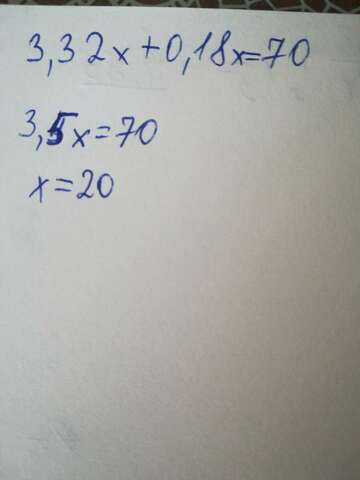 3,32x+0,18x=70
3,5x=70
x=20